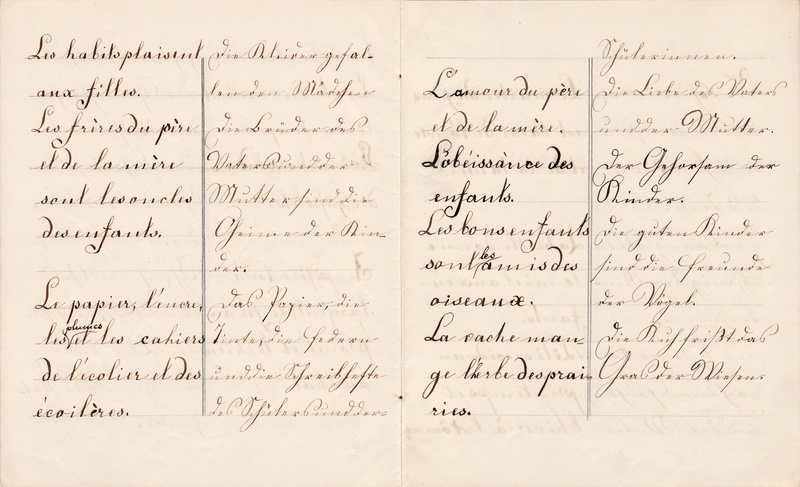 Les habits plaisent
aux filles.
Les frères du père
et de la mère
sont les oncles
des enfants.
Le papier, l'encre,
plumes
les et les cahiers
de l'écolier et des
écoilères.
Die Kleider gefal-
len den Mädchen
Die Brüder des
Vaters und der
Mutter sind die
Oheime der Kin-
der.
Das Papier, die
Tinte, die Federn
und die Schreibhefte
des Schülers und der-
L'amour du père
et de la mère.
L'obéissance des
enfants.
Les bons enfants
les
sont amis des
oiseaux.
La vache man-
ge l'herbe des prai-
ries.
Schülerinnen.
Die Liebe des Vaters
und der Mutter.
Der Gehorsam der
Kinder.
Die guten Kinder
sind die Freunde
der Vögel.
Die Kuh frißt das
Gras der Wiesen.